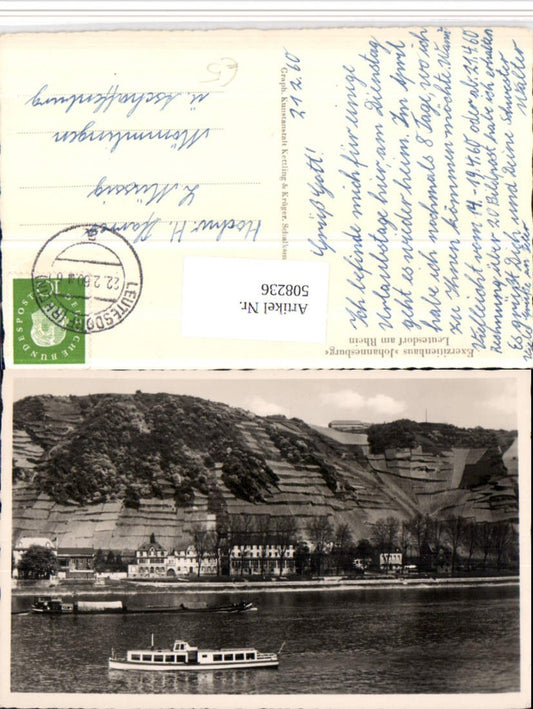 Exerzitienhaus »Johannesburg«
Leutesdorf am Rhein
Graph. Kunstanstalt Kettling & Krüger, Schalksm
21 2. 60
Grüß Gott!
Ich befinde mich für einige
Urlaubstage hier, am Dienstag
geht es wieder heim. Im April
habe ich nochmals 8 Tage wo ich
zu Ihnen kommen möchte. Wann
Vielleicht vom 14.-19.4.60 oder ab 21.4.60
Rechnung über 20 Bildpost habe ich erhalten
Es grüßt Dich und Deine Schwester
Walter
Hochw. H. Pfarrer
L. Müssig
Mömmlingen
ü. Aschaffenburg
65
LEUTESDORF (RHEIN)
22. 2. 60
a
10
DEUTSCHE BUNDESPOST
Artikel Nr.
508236